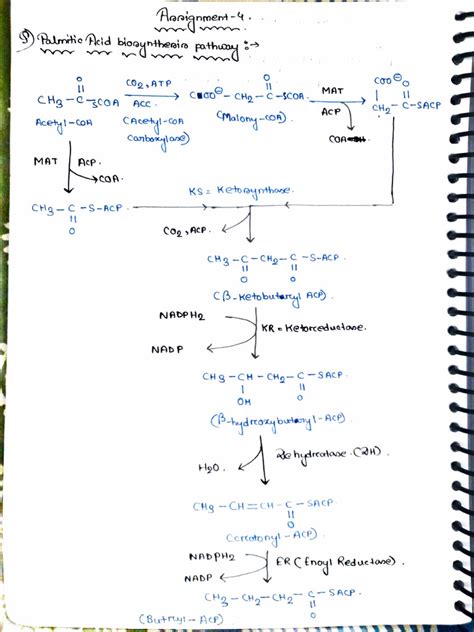 Assignment-4.
Palmitic Acid biosynthesis pathway :→
O CO2, ATP O MAT COO⊖
CH3 - C - SCOA → COO⊖ - CH2 - C - SCOA → CH2 - C - SACP
ACC ACP O
Acetyl-COA (Acetyl-COA (Malony-COA). COA
Carboxylase)
MAT ACP.
COA.
KS = Ketosynthase.
CH3 - C - S-ACP
O
CO2, ACP
CH3 - C - CH2 - C - S-ACP.
O O
(β-Ketobutaryl ACP)
NADPH2
KR = Ketoreductase.
NADP
CH3 - CH - CH2 - C - SACP.
OH O
(β-hydroxybutaryl-ACP)
Dehydratase (DH).
H2O.
CH3 - CH = CH - C - SACP
O
(Crotonyl - ACP)
NADPH2
ER (Enoyl Reductase).
NADP
CH3 - CH2 - CH2 - C - SACP.
O
(Butryl - ACP)